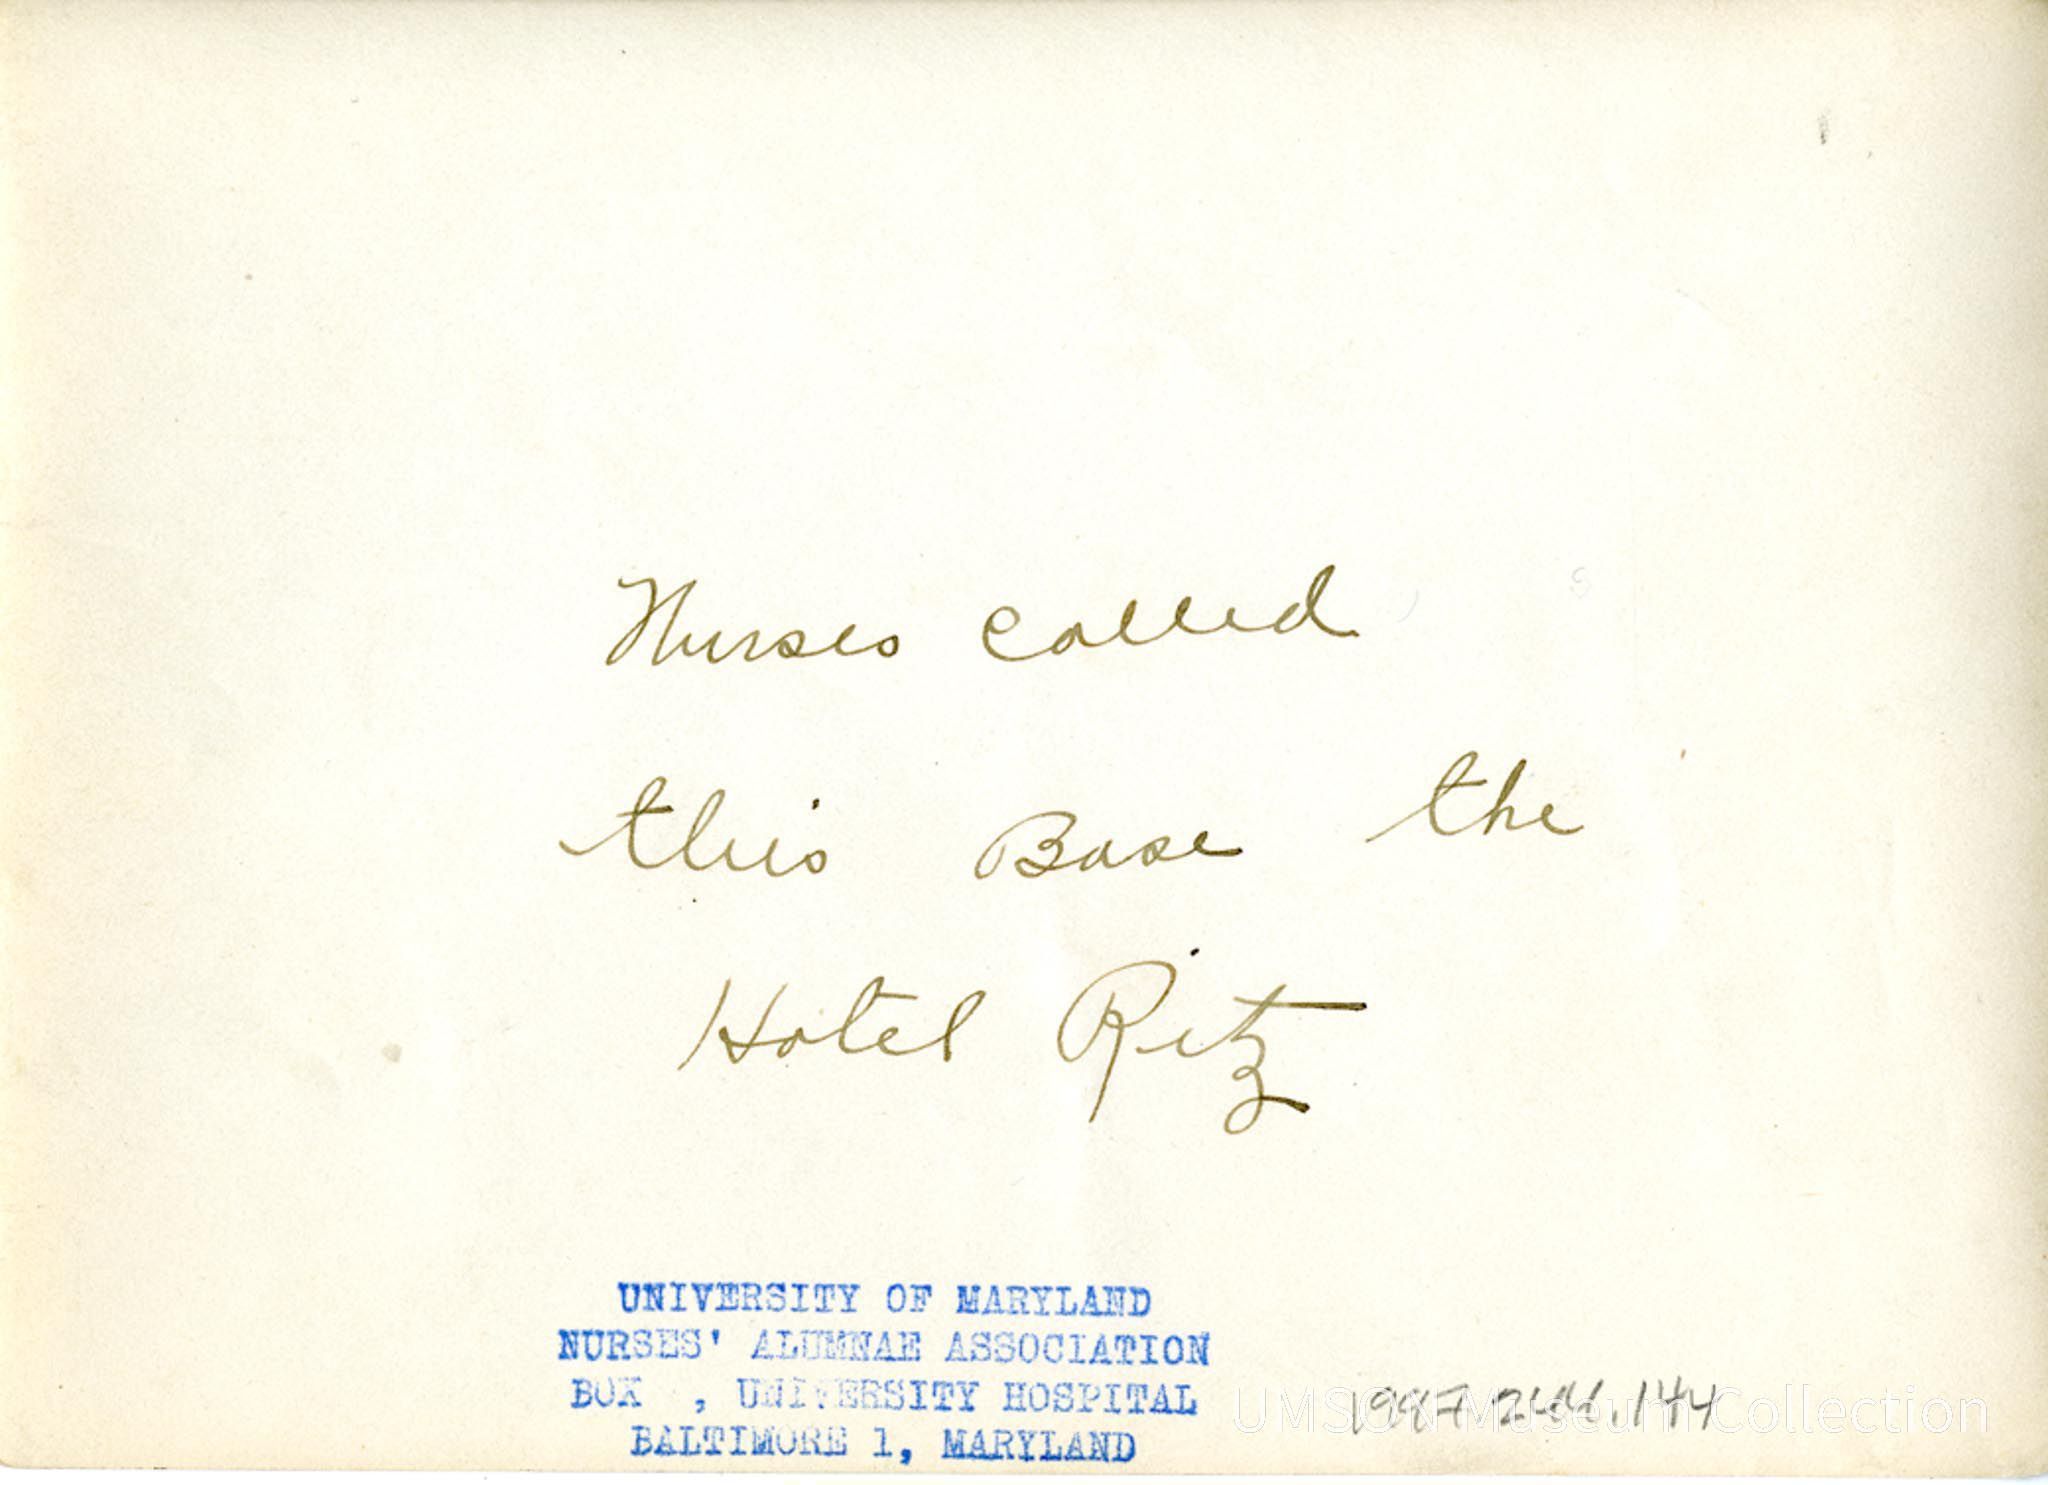 Nurses called
this Base the
Hotel Ritz
UNIVERSITY OF MARYLAND
NURSES' ALUMNAE ASSOCIATION
BOX , UNIVERSITY HOSPITAL
BALTIMORE 1, MARYLAND
UMSON Museum Collection